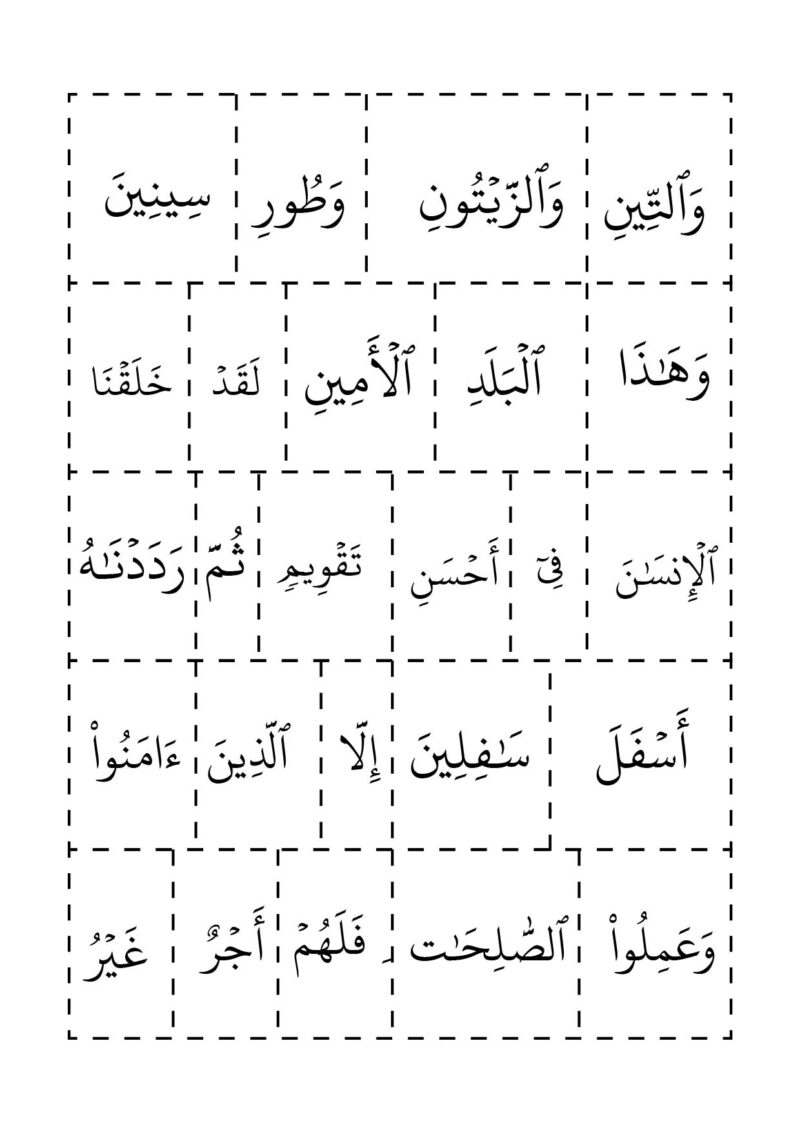 وَٱلتِّينِ وَٱلزَّيْتُونِ وَطُورِ سِينِينَ
وَهَـٰذَا ٱلْبَلَدِ ٱلْأَمِينِ لَقَدْ خَلَقْنَا
ٱلْإِنسَـٰنَ فِىٓ أَحْسَنِ تَقْوِيمٍ ثُمَّ رَدَدْنَـٰهُ
أَسْفَلَ سَـٰفِلِينَ إِلَّا ٱلَّذِينَ ءَامَنُوا۟
وَعَمِلُوا۟ ٱلصَّـٰلِحَـٰتِ فَلَهُمْ أَجْرٌ غَيْرُ